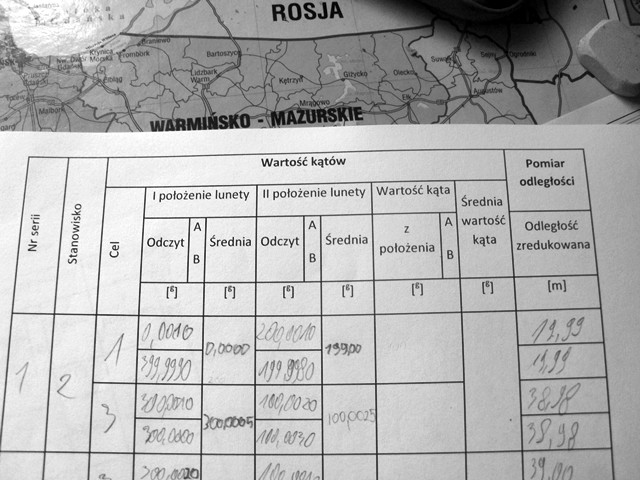 ROSJA
Braniewo
Frombork
Bartoszyce
Lidzbark
Warm.
Kętrzyn
Giżycko
Olecko
Ełk
Augustów
Malbork
Mrągowo
WARMIŃSKO - MAZURSKIE
Nr serii
Stanowisko
Cel
Wartość kątów
Pomiar
odległości
I położenie lunety
II położenie lunety
Wartość kąta
Średnia
wartość
kąta
Odczyt
A
B
Średnia
Odczyt
A
B
Średnia
z
położenia
A
B
Odległość
zredukowana
[g] [g] [g] [g] [g] [g] [m]
1 2 1 0,0010 0,0000 200,0010 199,00 19,99
399,9990 199,9980 19,99
3 300,0010 300,0005 100,0020 100,0025 38,98
300,0000 100,0030 38,98
300,0020 39,00